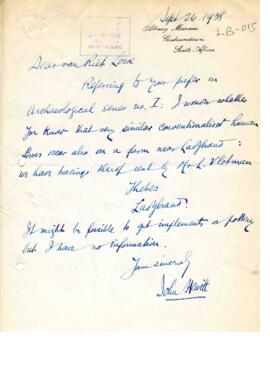 Sept. 26. 1938
LB-015
Albany Museum,
Grahamstown,
South Africa.
Dear van Riet Lowe
Referring to your paper in
Archaeological series no. I: I wonder whether
you know that very similar conventionalised human
forms occur also on a farm near Ladybrand:
we have tracings thereof sent by Mr. L. Vlotman
Thebes
Ladybrand.
It might be possible to get implements & pottery
but I have no information.
Yours sincerely
John Hewitt